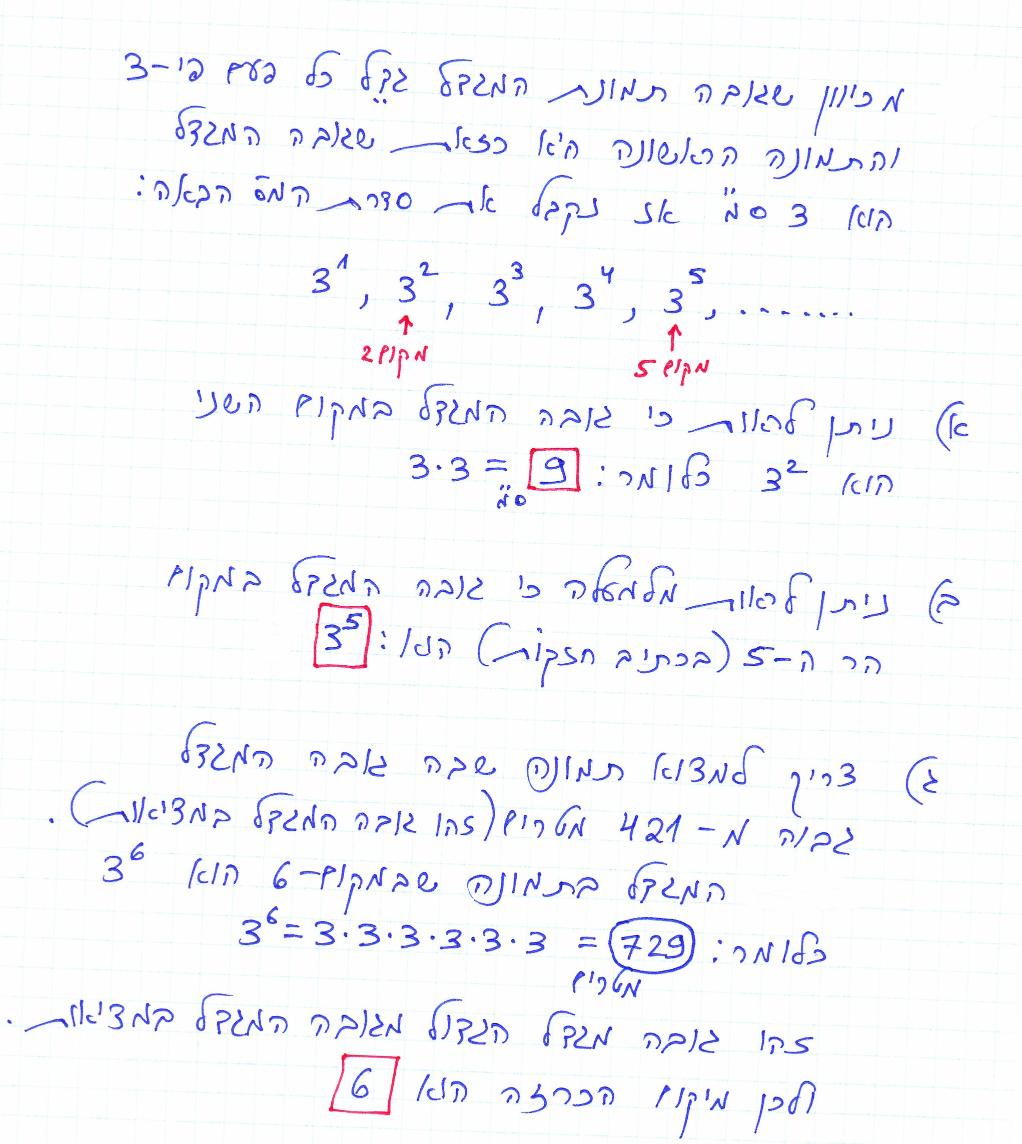 מכיוון שגובה תמונת המגדל גדל כל פעם פי-3
והתמונה הראשונה היא כזאת שגובה המגדל
הוא 3 ס"מ אז נקבל את סדרת המס' הבאה:
3¹, 3², 3³, 3⁴, 3⁵, ........
מקום 2 מקום 5
א) ניתן לראות כי גובה המגדל במקום השני
הוא 3² כלומר: 3·3 = 9 ס"מ
ב) ניתן לראות מלמעלה כי גובה המגדל במקום
הר ה-5 (בכתיב חזקות) הוא: 3⁵
ג) צריך למצוא תמונה שבה גובה המגדל
גבוה מ-421 מטרים (זהו גובה המגדל במציאות).
המגדל בתמונה שבמקום-6 הוא 3⁶
כלומר: 3⁶=3·3·3·3·3·3 = 729 מטרים
זהו גובה מגדל הגדול מגובה המגדל במציאות.
ולכן מיקום הכרזה הוא 6